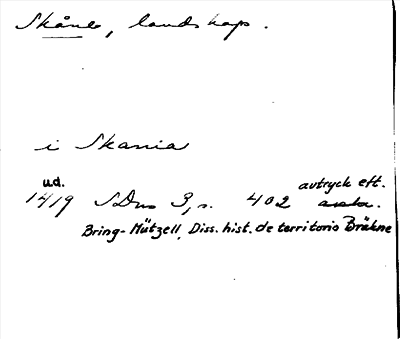 Skåne, landskap.
i Skania
u.d. avtryck eft.
1419 SDns 3, s. 402 avskr.
Bring-Mützell, Diss. hist. de territorio Bräkne